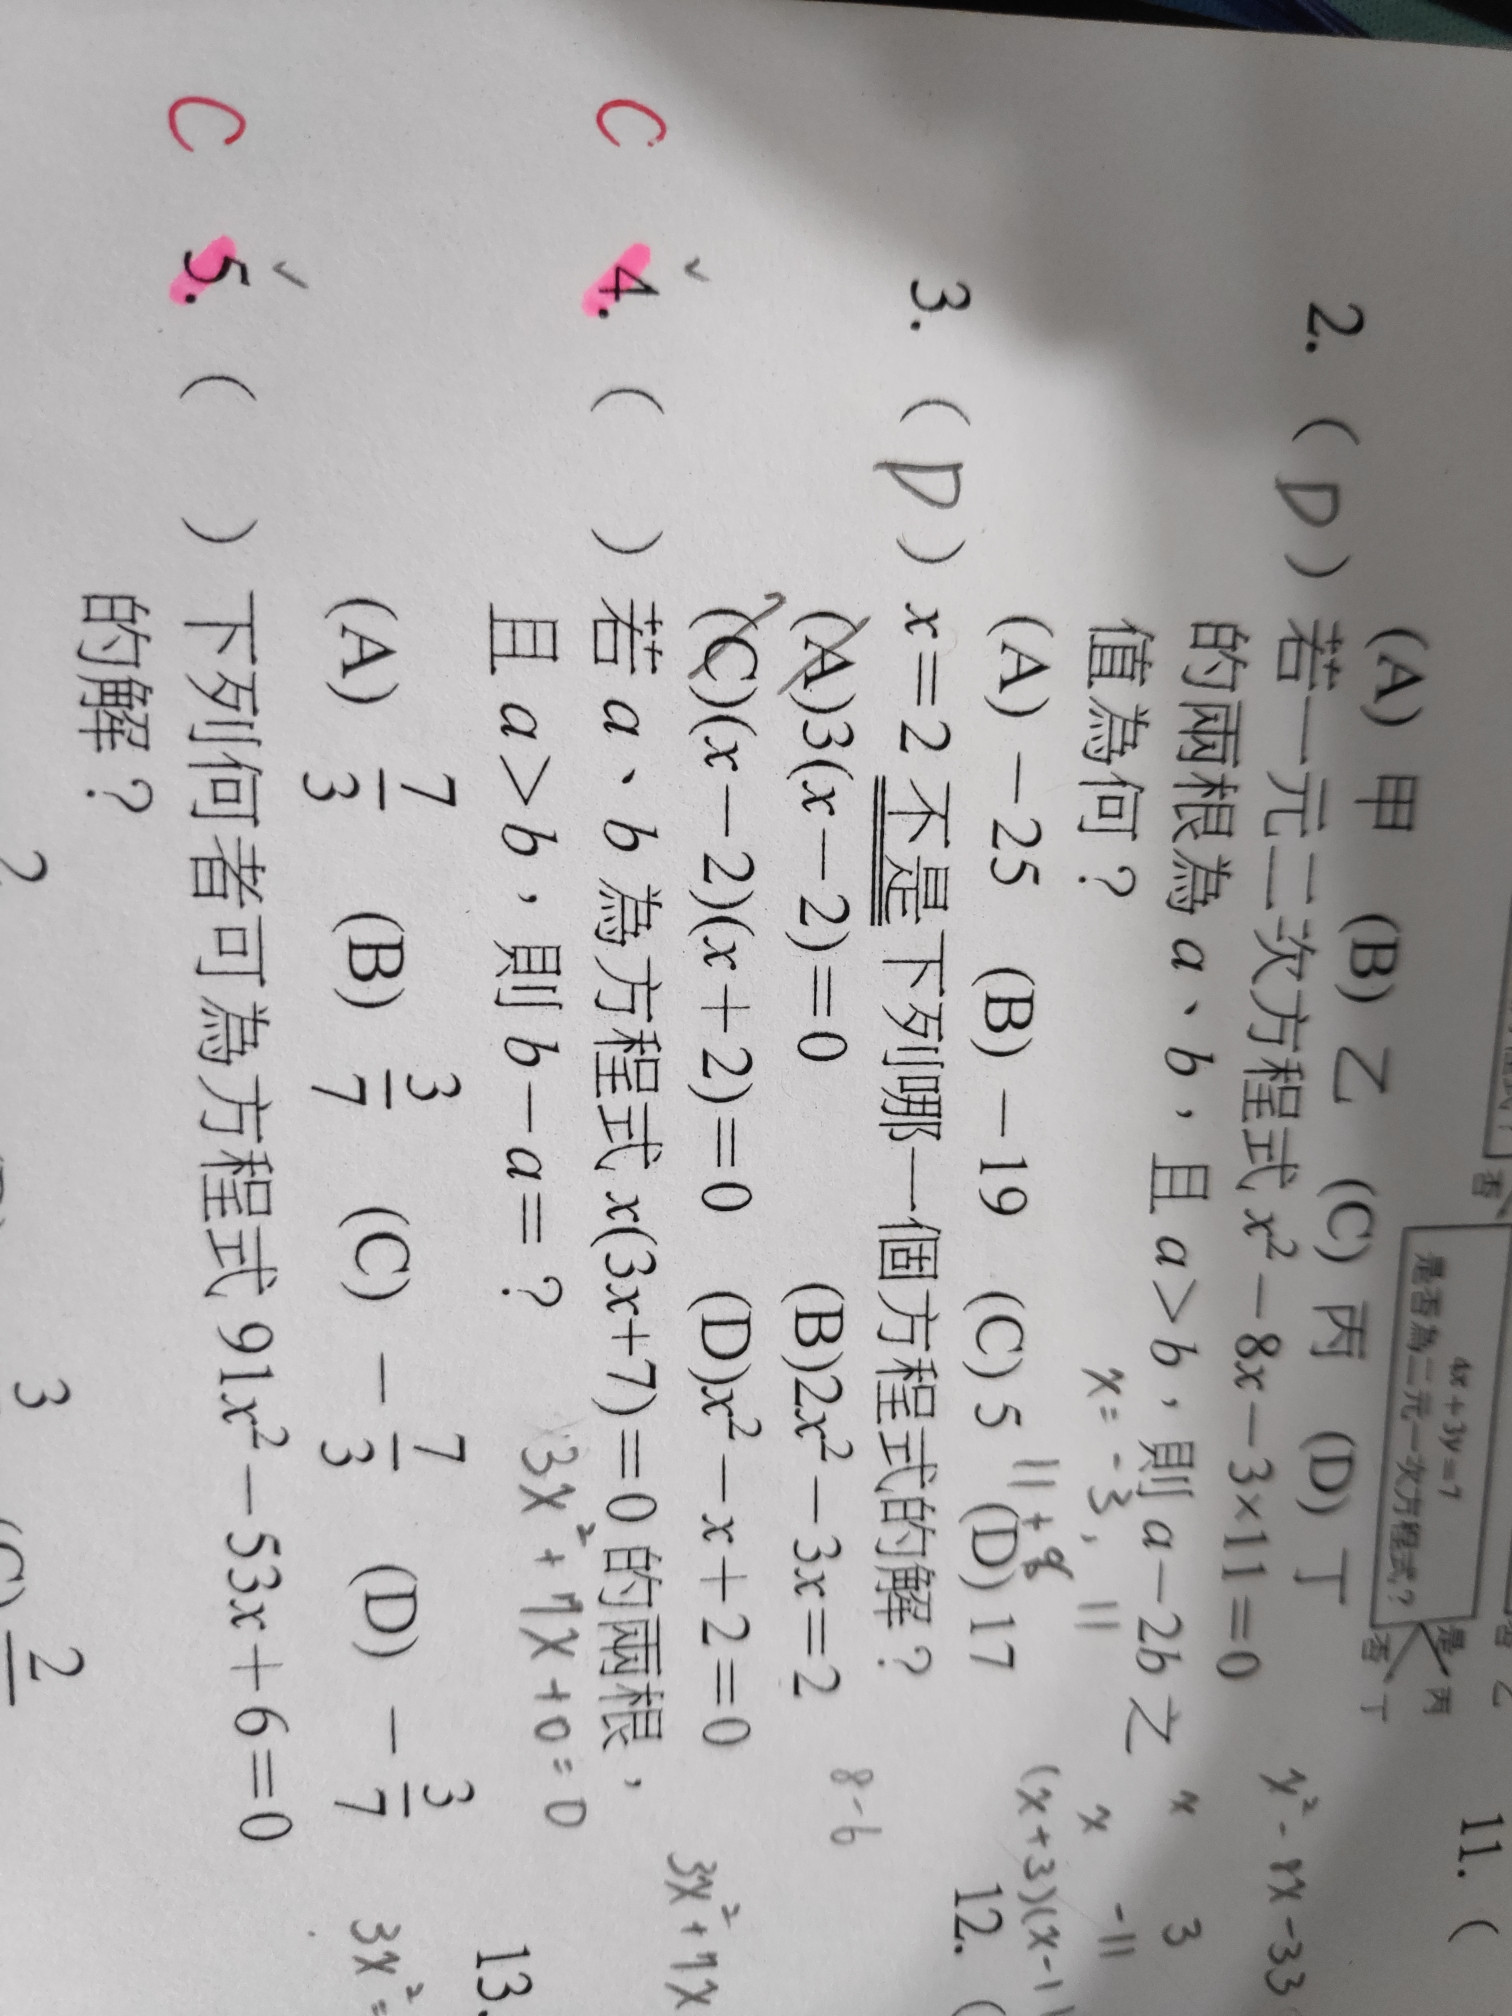 4x+3y=7
是否為二元一次方程式?
是 丙
否 丁
(A) 甲 (B) 乙 (C) 丙 (D) 丁
11. (
2. ( D ) 若一元二次方程式 x²-8x-3×11=0
的兩根為 a、b，且 a>b，則 a-2b 之
值為何？
x=-3, 11
x 3
x -11
(x+3)(x-11
11+8
(A) -25 (B) -19 (C) 5 (D) 17
12. (
3. ( D ) x=2 不是下列哪一個方程式的解？
(A)3(x-2)=0 (B)2x²-3x=2
8-6
(C)(x-2)(x+2)=0 (D)x²-x+2=0
C 4. ( ) 若 a、b 為方程式 x(3x+7)=0 的兩根，
3x²+7x
且 a>b，則 b-a=？
3x²+7x+0=0
13.
(A) 7/3 (B) 3/7 (C) -7/3 (D) -3/7
3x²=
C 5. ( ) 下列何者可為方程式 91x²-53x+6=0
的解？